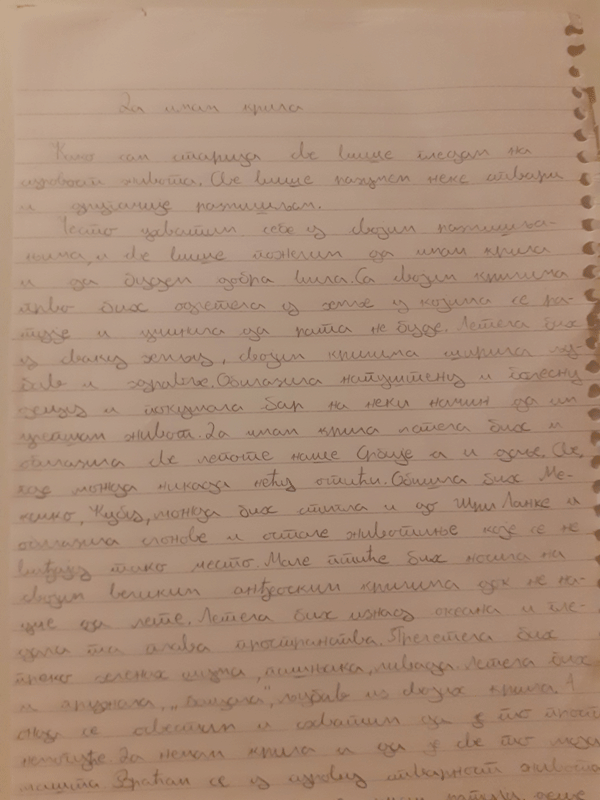 Да имам крила
Како сам старија све више гледам на
суровост живота. Све више разумем неке ствари
и другачије размишљам.
Често ухватим себе у својим размишља-
њима, и све више пожелим да имам крила
и да будем добра вила. Са својим крилима
прво бих одлетела у земље у којима се ра-
тује и учинила да рата не буде. Летела бих
у сваку земљу, својим крилима ширила љу-
бав и здравље. Обилазила напуштену и болесну
децу и покушала бар на неки начин да им
улепшам живот. Да имам крила летела бих и
обилазила све лепоте наше Србије а и даље. Све,
где можда никада нећу отићи. Обишла бих Ме-
ксико, Кубу, можда бих стигла и до Шри Ланке и
обилазила слонове и остале животиње које се не
виђају тако често. Мале птиће бих носила на
својим великим анђеоским крилима док не на-
уче да лете. Летела бих изнад океана и гле-
дала та плава пространства. Прелетела бих
преко зелених шума, пашњака, ливада. Летела бих
и пружала, љубав из својих крила. А
онда се освестим и схватим да је то прост
немогуће. Да немам крила и да је све то моја
машта. Враћам се у сурову стварност живота